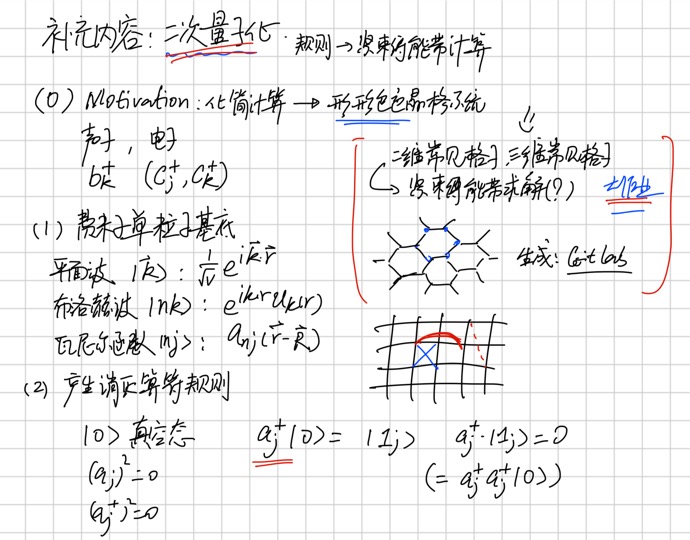 补充内容：二次量子化. 规则→紧束缚能带计算
(0) Motivation：化简计算 → 形形色色晶格系统
声子，电子
b_k^+ (C_j^+, C_k^+)
二维常见格子，三维常见格子
↳ 紧束缚能带求解(?)
生成：GitLab
(1) 费米子单粒子基底
平面波 |\vec{k}⟩：\frac{1}{\sqrt{V}} e^{i\vec{k}\vec{r}}
布洛赫波 |nk⟩：e^{ikr}u_k(r)
瓦尼尔函数 |nj⟩：a_{nj}(\vec{r}-\vec{R}_j)
(2) 产生消灭算符规则
|0⟩ 真空态 a_j^+|0⟩ = |1_j⟩ a_j^+·|1_j⟩=0
(a_j)^2=0 (= a_j^+ a_j^+|0⟩)
(a_j^+)^2=0